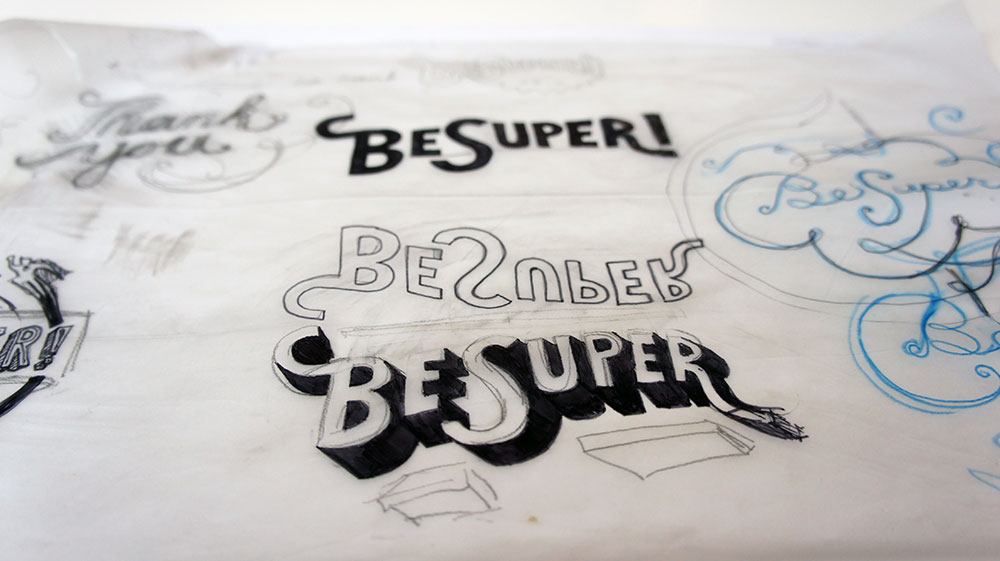 Thank
you
BESUPER!
Be Super
BESUPER
ER!
BESUPER
Be